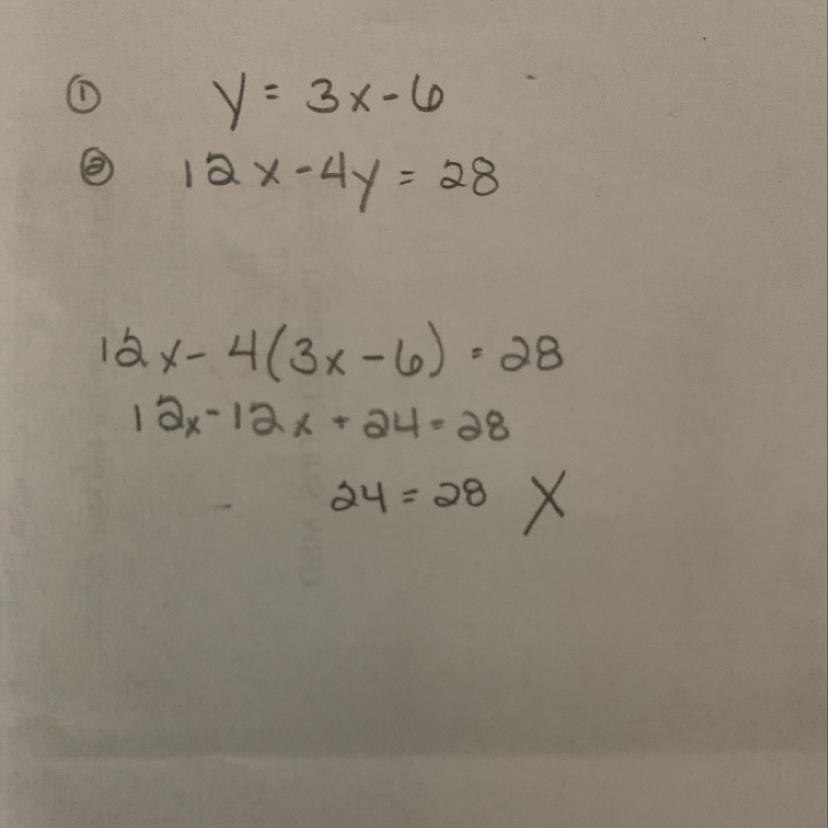 ① y = 3x - 6
② 12x - 4y = 28
12x - 4(3x - 6) = 28
12x - 12x + 24 = 28
24 = 28 X